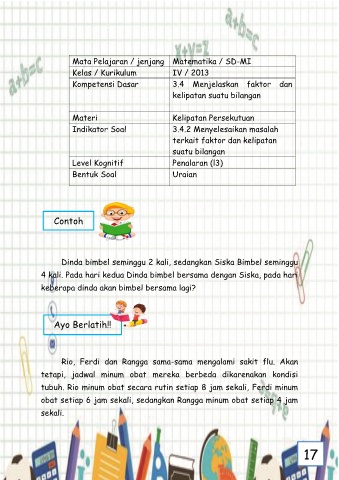 a+b=c
a+b=c
x+y=z
Mata Pelajaran / jenjang Matematika / SD-MI
Kelas / Kurikulum IV / 2013
Kompetensi Dasar 3.4 Menjelaskan faktor dan
kelipatan suatu bilangan
Materi Kelipatan Persekutuan
Indikator Soal 3.4.2 Menyelesaikan masalah
terkait faktor dan kelipatan
suatu bilangan
Level Kognitif Penalaran (l3)
Bentuk Soal Uraian
Contoh
Dinda bimbel seminggu 2 kali, sedangkan Siska Bimbel seminggu
4 kali. Pada hari kedua Dinda bimbel bersama dengan Siska, pada hari
keberapa dinda akan bimbel bersama lagi?
Ayo Berlatih!!
Rio, Ferdi dan Rangga sama-sama mengalami sakit flu. Akan
tetapi, jadwal minum obat mereka berbeda dikarenakan kondisi
tubuh. Rio minum obat secara rutin setiap 8 jam sekali, Ferdi minum
obat setiap 6 jam sekali, sedangkan Rangga minum obat setiap 4 jam
sekali.
17